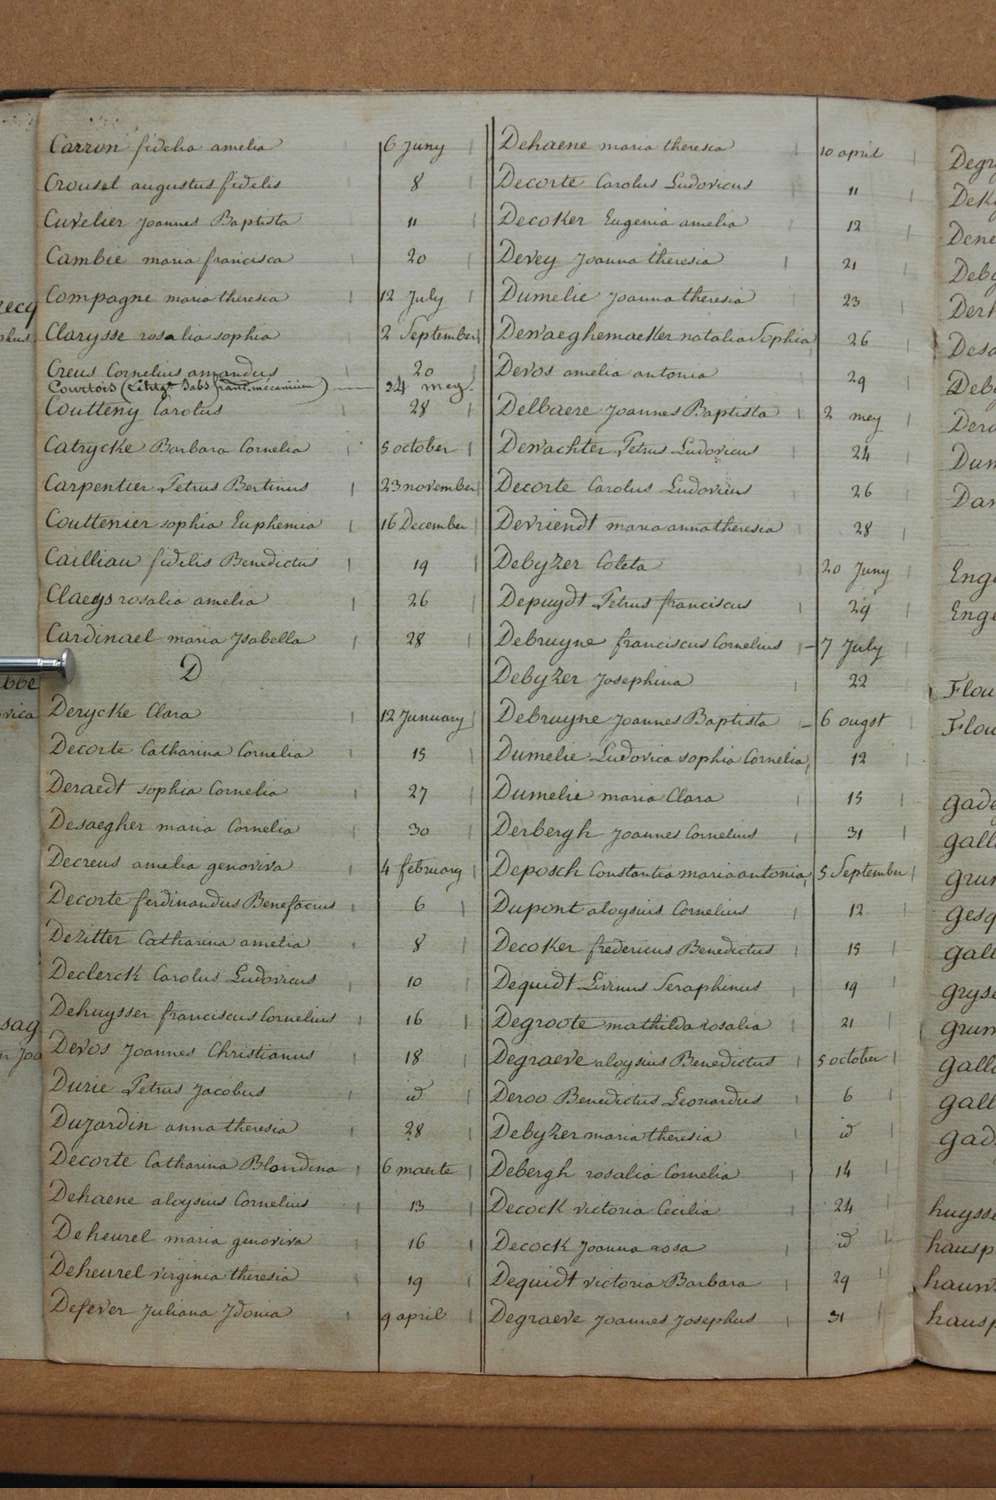 Carron fidelia amelia 6 Juny
Crousel augustus fidelis 8
Cuvelier Joannes Baptista 11
Cambie maria francisca 20
Compagne maria theresia 12 July
Clarysse rosalia sophia 2 September
Creus Cornelius amandus 20
Courtois 24 mey
Coutteny Carolus 28
Catrycke Barbara Cornelia 5 october
Carpentier Petrus Bertinus 23 november
Couttenier sophia Euphemia 16 December
Cailliau fidelis Benedictus 19
Claeys rosalia amelia 26
Cardinael maria Ysabella 28
D
Derycke Clara 12 Junuary
Decorte Catharina Cornelia 15
Deraedt sophia Cornelia 27
Desaegher maria Cornelia 30
Decreus amelia genoviva 4 february
Decorte ferdinandus Benefacius 6
Dezitter Catharina amelia 8
Declerck Carolus Ludovicus 10
Dehuysser franciscus Cornelius 16
Devos Joannes Christianus 18
Durie Petrus Jacobus id
Dujardin anna theresia 28
Decorte Catharina Blondina 6 maerte
Dehaene aloysius Cornelius 13
Deheurel maria genoviva 16
Deheurel virginia theresia 19
Defever Juliana Jdonia 9 april
Dehaene maria theresia 10 april
Decorte Carolus Ludovicus 11
Decoker Eugenia amelia 12
Devey Joanna theresia 21
Dumelie Joanna theresia 23
Dewaeghemaeker natalia Sophia 26
Devos amelia antonia 29
Delbaere Joannes Baptista 2 mey
Dewachter Petrus Ludovicus 24
Decorte Carolus Ludovicus 26
Devriendt maria anna theresia 28
Debyzer Coleta 20 Juny
Depuydt Petrus franciscus 29
Debruyne franciscus Cornelius 7 July
Debyzer Josephina 22
Debruyne Joannes Baptista 6 ougst
Dumelie Ludovica sophia Cornelia 12
Dumelie maria Clara 15
Derbergh Joannes Cornelius 31
Deposch Constantia maria antonia 5 September
Dupont aloysius Cornelius 12
Decoker fredericus Benedictus 15
Dequidt Livinus Seraphinus 19
Degroote mathilda rosalia 21
Degraeve aloysius Benedictus 5 october
Deroo Benedictus Leonardus 6
Debyzer maria theresia id
Debergh rosalia Cornelia 14
Decock victoria Cecilia 24
Decock Joanna rosa id
Dequidt victoria Barbara 29
Degraeve Joannes Josephus 31